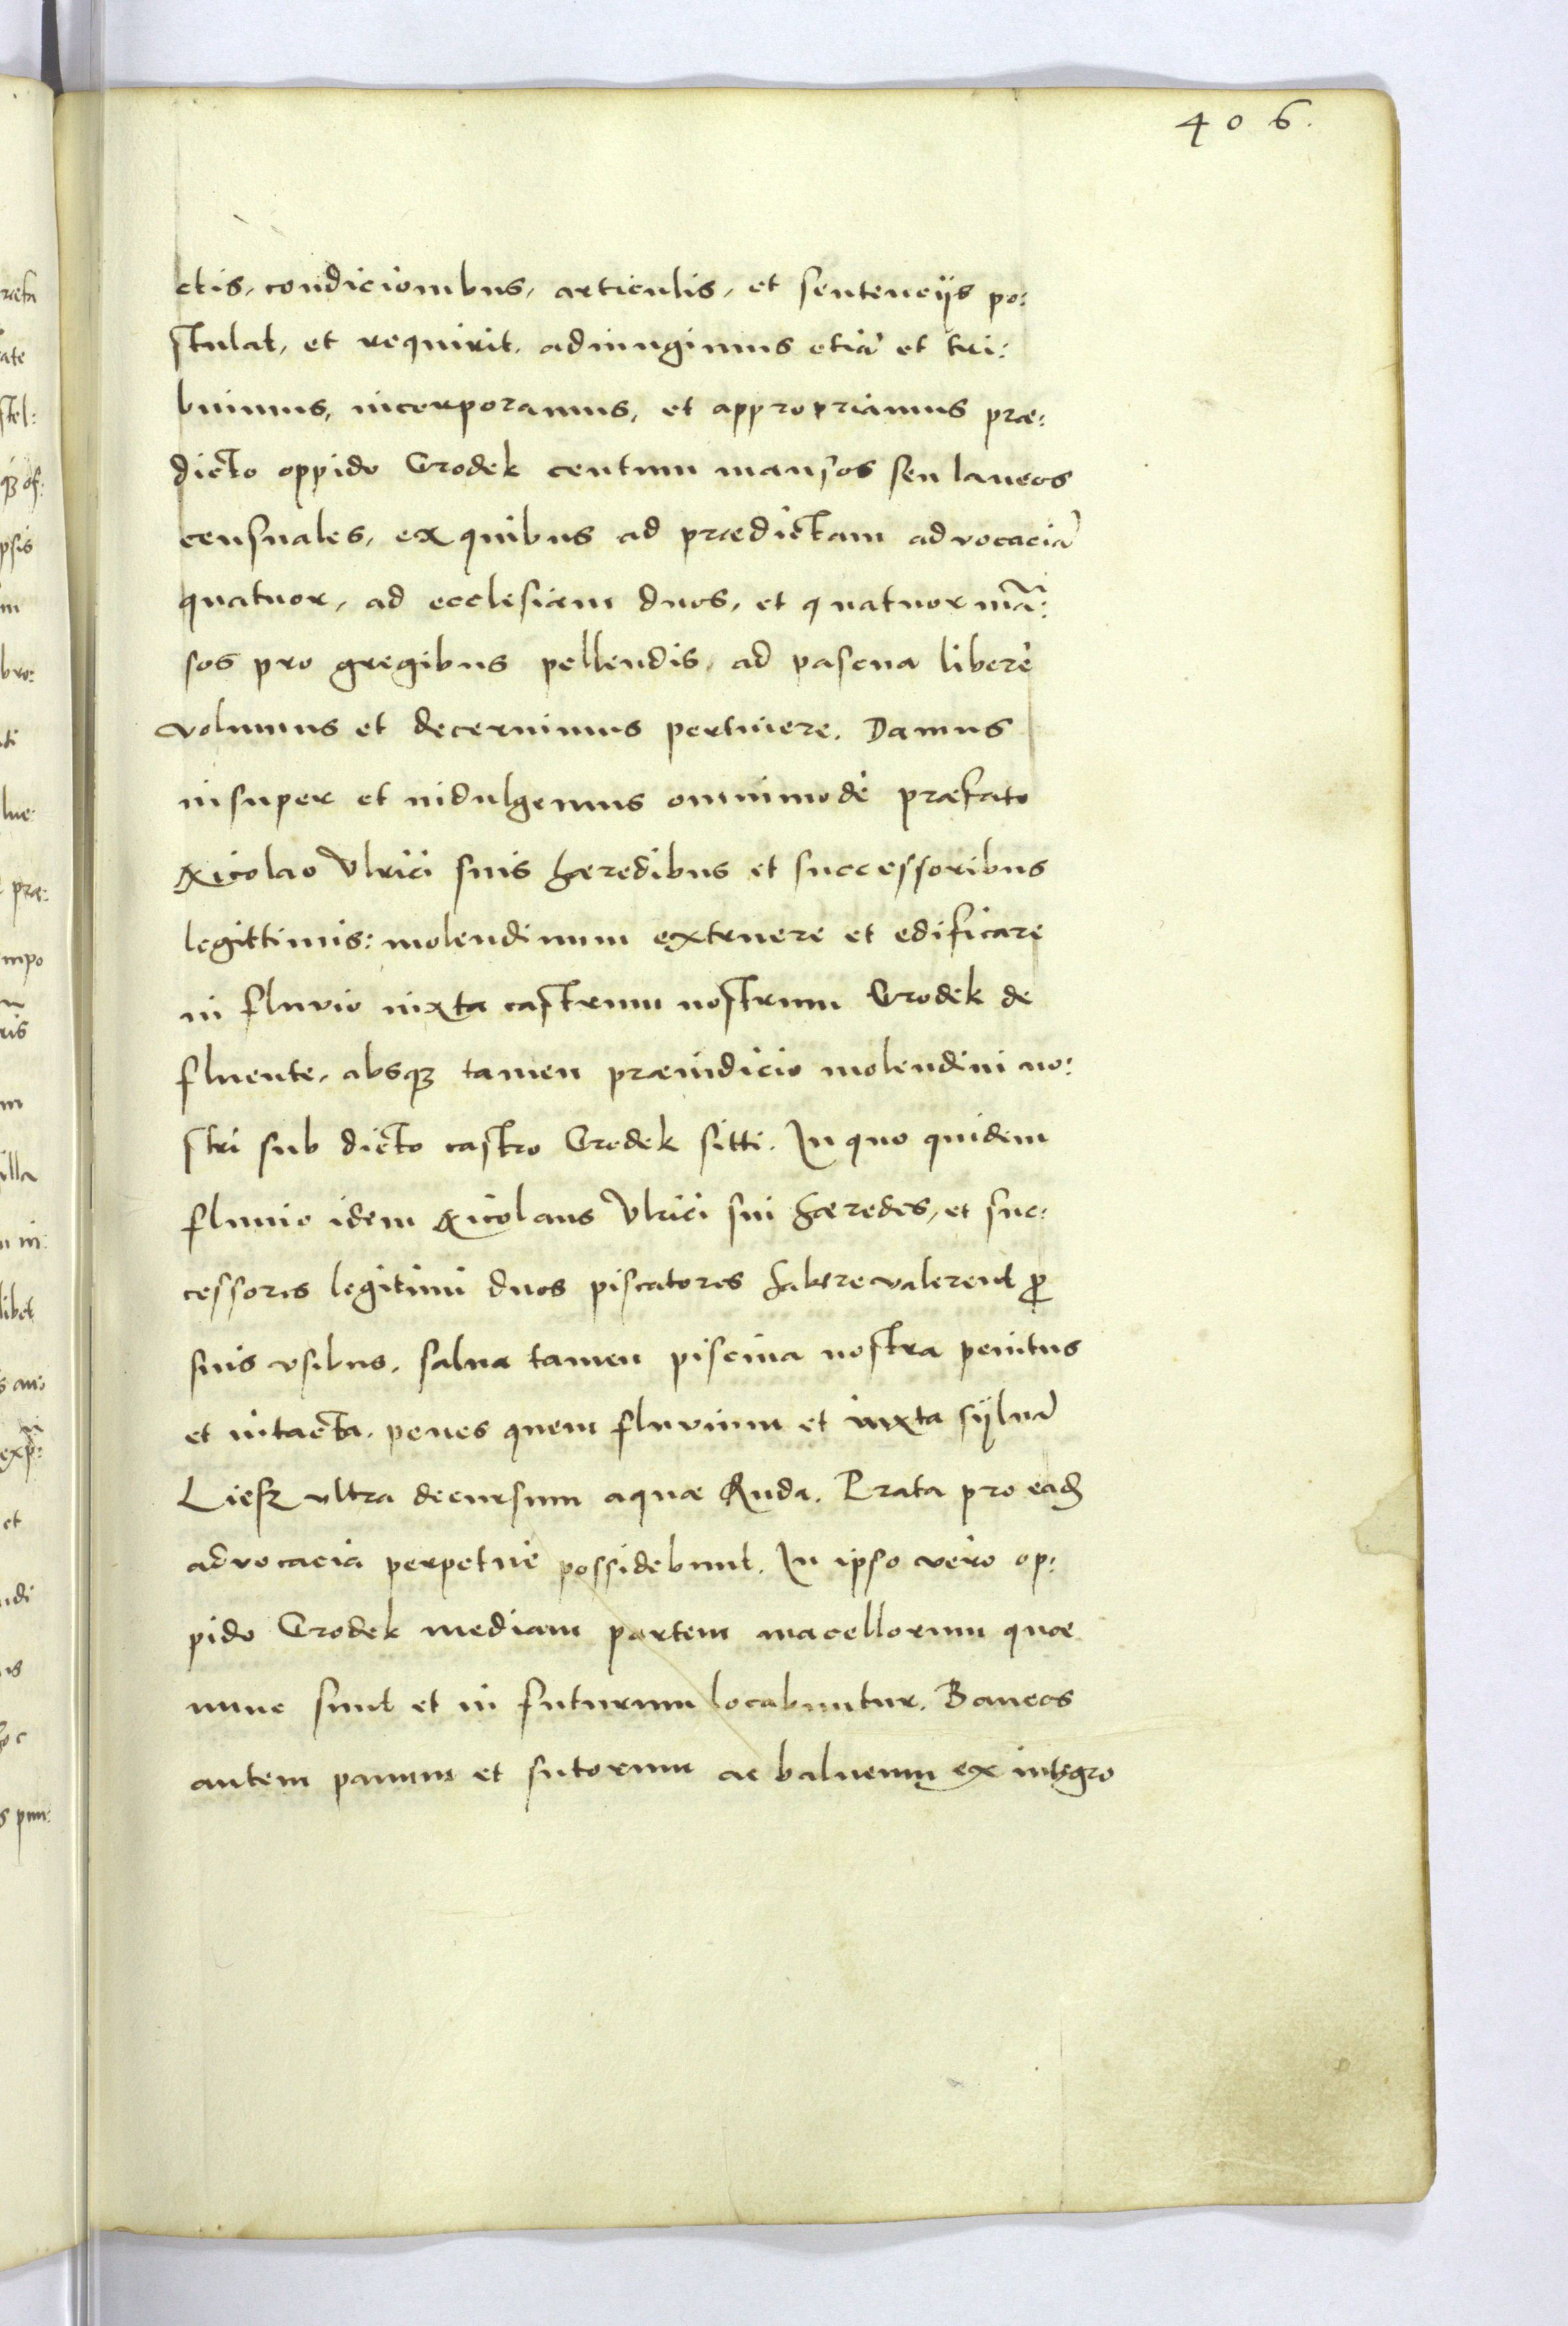 406.
ctis, condicionibus, articulis, et sentencijs po:
stulat, et requirit. adiungimus etiã et tri:
buimus, incorporamus, et appropriamus præ:
dicto oppido Grodek centum mansos seu laneos
censuales, ex quibus ad prædictam advocaciã
quatuor, ad ecclesiam duos, et quatuor mã:
sos pro gregibus pellendis, ad pascua liberè
volumus et decernimus pertinere. Damus
insuper et indulgemus omnimodè præfato
Nicolao Vlrici suis hæredibus et successoribus
legittimis: molendinum extruere et edificare
in fluvio iuxta castrum nostrum Grodek de
fluente, absqꝫ tamen præiudicio molendini no:
stri sub dicto castro Grodek sitti. In quo quidem
fluuio idem Nicolaus Vlrici sui hæredes, et suc:
cessores legitimi duos piscatores habere valerent ꝓ
suis vsibus. salua tamen piscina nostra penitus
et intacta. penes quem fluvium et iuxta sÿluã
ultra decursum aquæ Ruda. Prata pro eadẽ
advocacia perpetuè possidebunt. In ipso vero op:
pido Grodek mediam partem macellorum quæ
nunc sunt et in futurum locabuntur. Bancos
autem panum et sutorum ac balneum ex integro